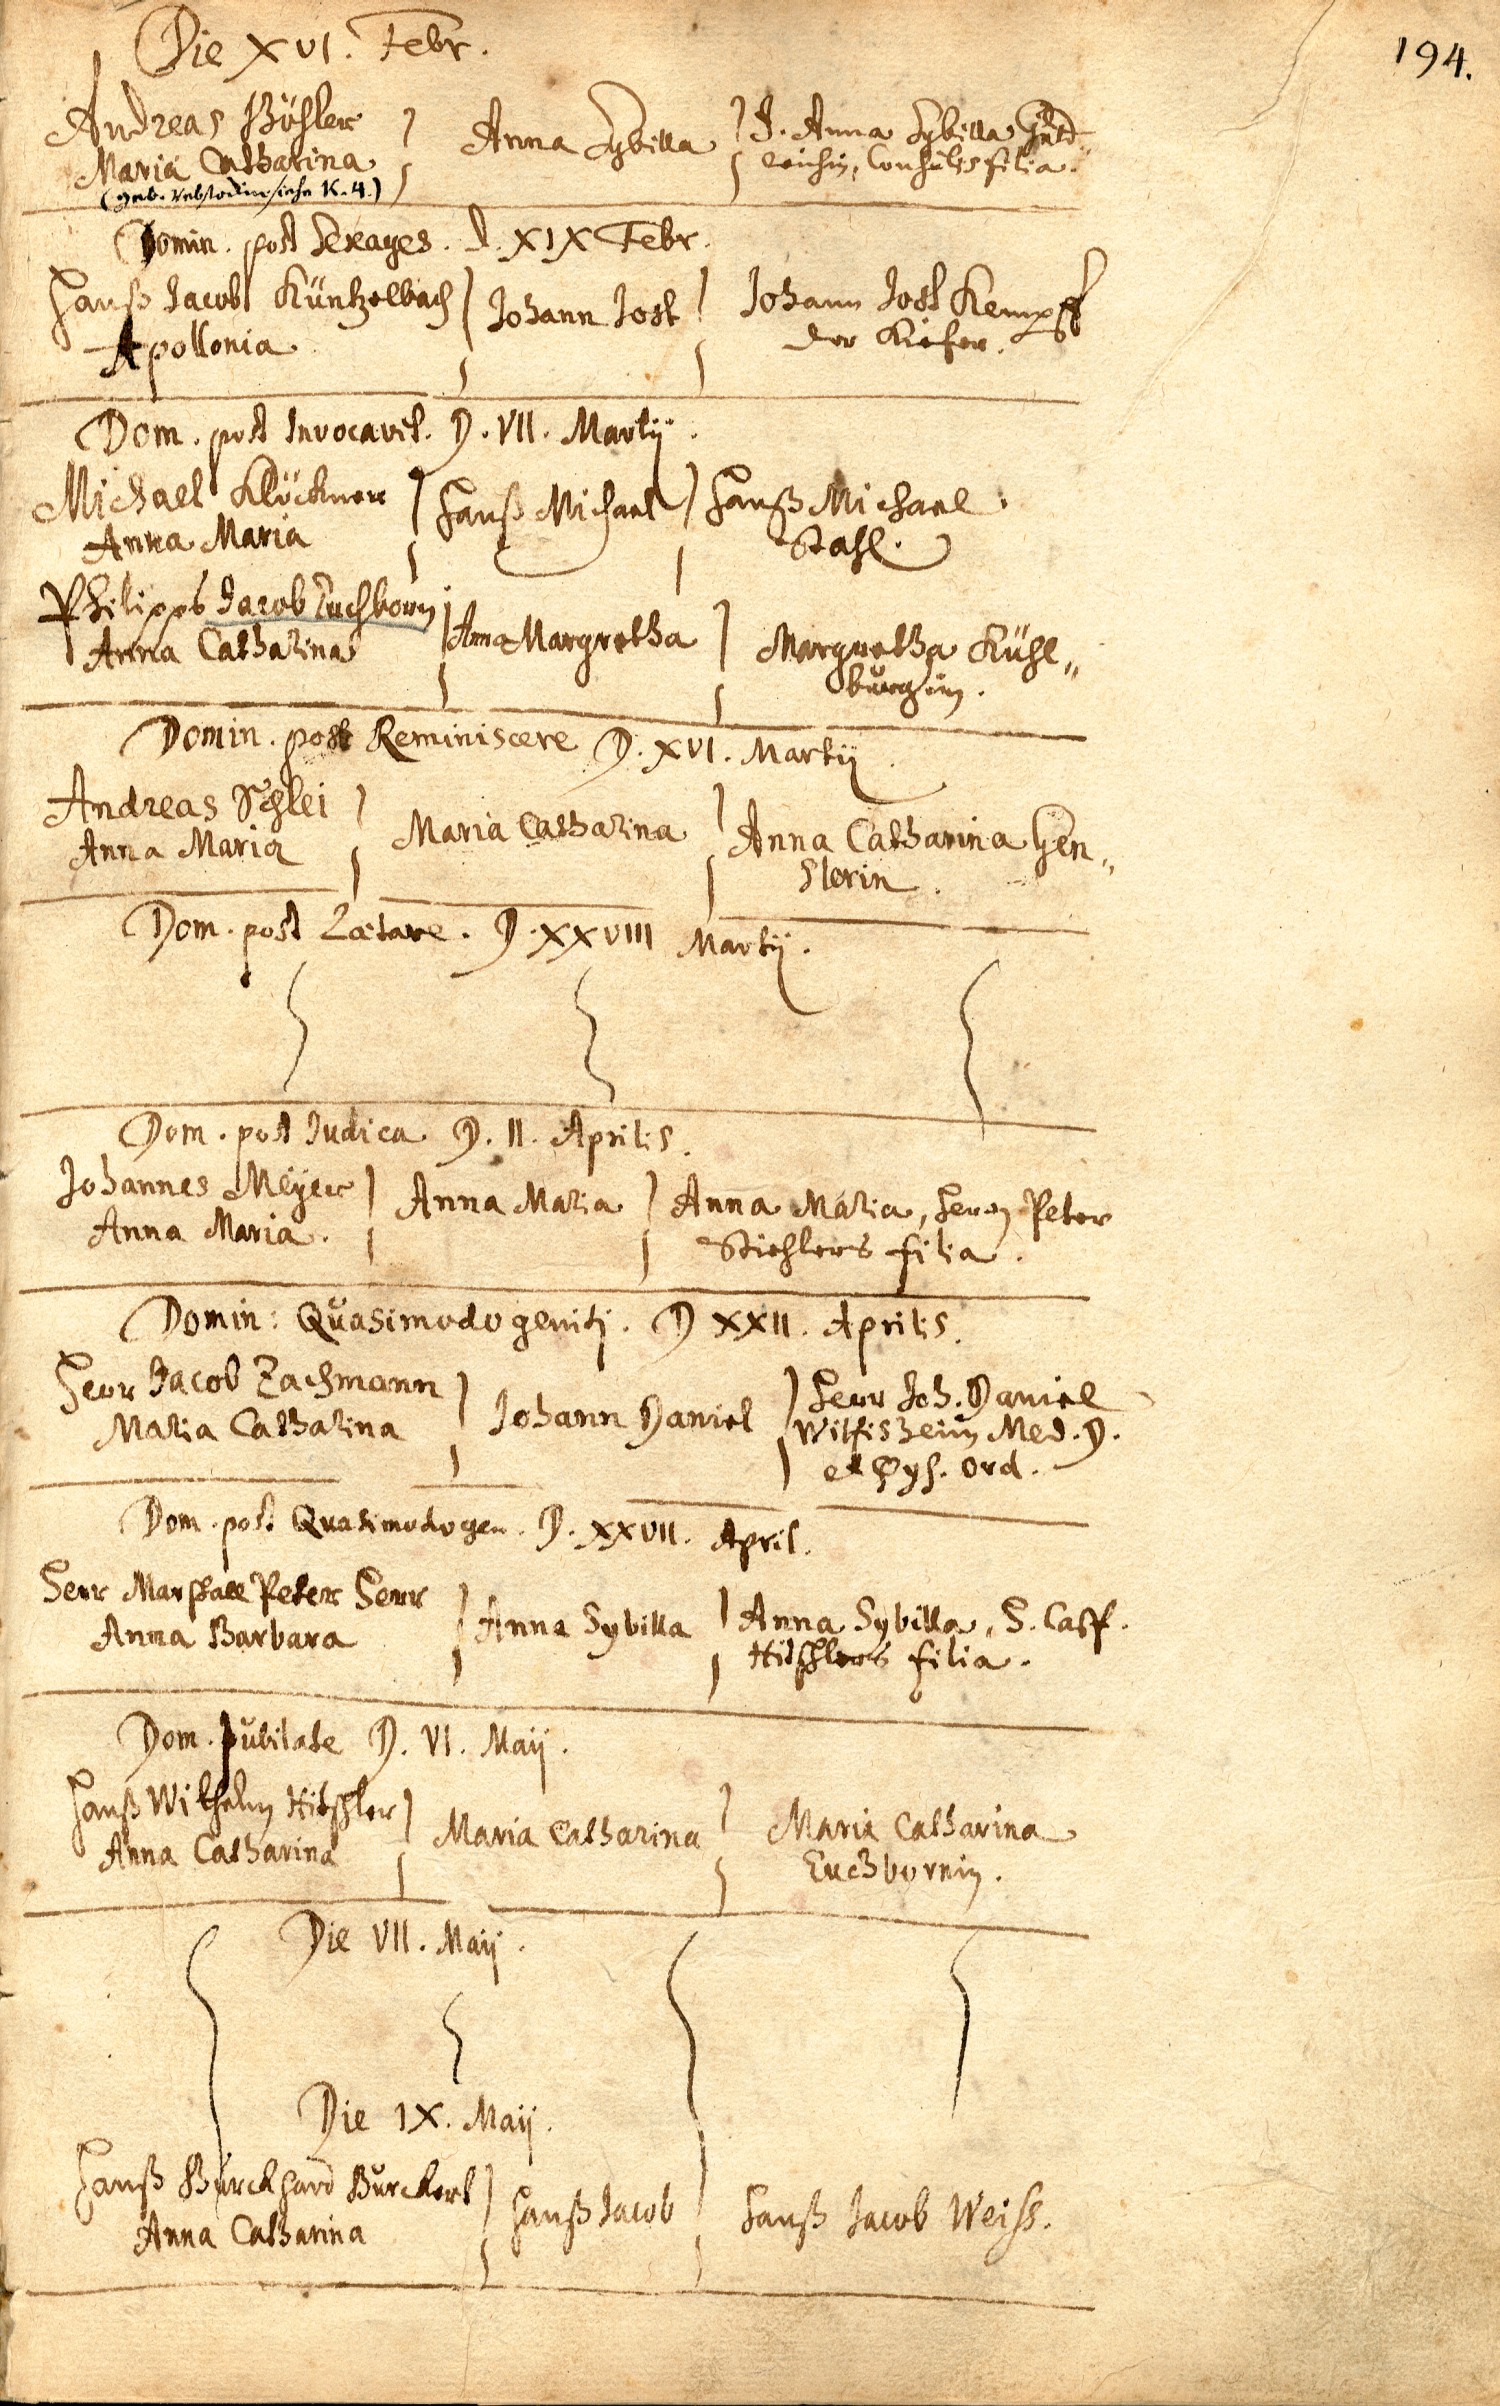 194.
Die XVI. Febr.
Andreas Böhler } Anna Sybilla } J. Anna Sybilla
Maria Catharina
Consulis filia.
siehe K. 4.)
Domin. post Sexages. d. XIX Febr.
Hanß Jacob Küntzelbach } Johann Jost } Johann Jost Kempff
Apollonia
der Kiefer.
Dom. post Invocavit. D. VII. Martij.
Michael Klöckner } Hanß Michael } Hanß Michael
Anna Maria
Stahl.
Philipps Jacob Euchborn } Anna Margretha } Margretha Kühl„
Anna Catharina
burgin.
Domin. post Reminiscere D. XVI. Martij
Andreas Schlei } Maria Catharina } Anna Catharina Hen„
Anna Maria
slerin.
Dom. post Lætare. D. XXVIII Martij.
Dom. post Judica D. II. Aprilis.
Johannes Meÿer } Anna Maria } Anna Maria, Herrn Peter
Anna Maria.
Stiehlers filia.
Domin: Quasimodogeniti. D XXII. Aprilis.
Herr Jacob Zachmann } Johann Daniel } Herr Joh. Daniel
Maria Catharina
Witfisheim Med. D.
et Phys. Ord.
Dom. post Quasimodogen. D. XXVII. April.
Herr Marschall Peter Herr } Anna Sybilla } Anna Sybilla, H. Casp.
Anna Barbara
Hitschlers filia.
Dom. Jubilate D. VI. Maij.
Hanß Wilhelm Hitschler } Maria Catharina } Maria Catharina
Anna Catharina
Euchbornin.
Die VII. Maij.
Die IX. Maij.
Hanß Burckhard Burckert } Hanß Jacob } Hanß Jacob Weiss.
Anna Catharina